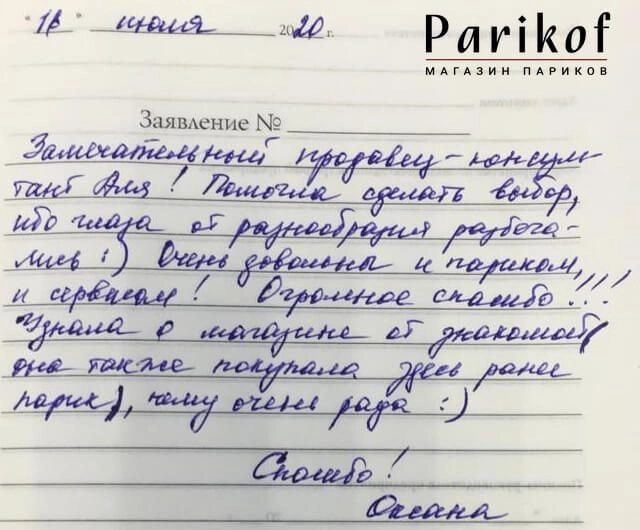 "16" июля 2020 г.
Parikof
МАГАЗИН ПАРИКОВ
Заявление №
Замечательный продавец-консуль-
тант Аля! Помогла сделать выбор,
ибо глаза от разнообразия разбега-
лись :) Очень довольны и париком,
и сервисом! Огромное спасибо!!!
Узнала о магазине от знакомой (
она также покупала здесь ранее
парик), чему очень рада :)
Спасибо!
Оксана